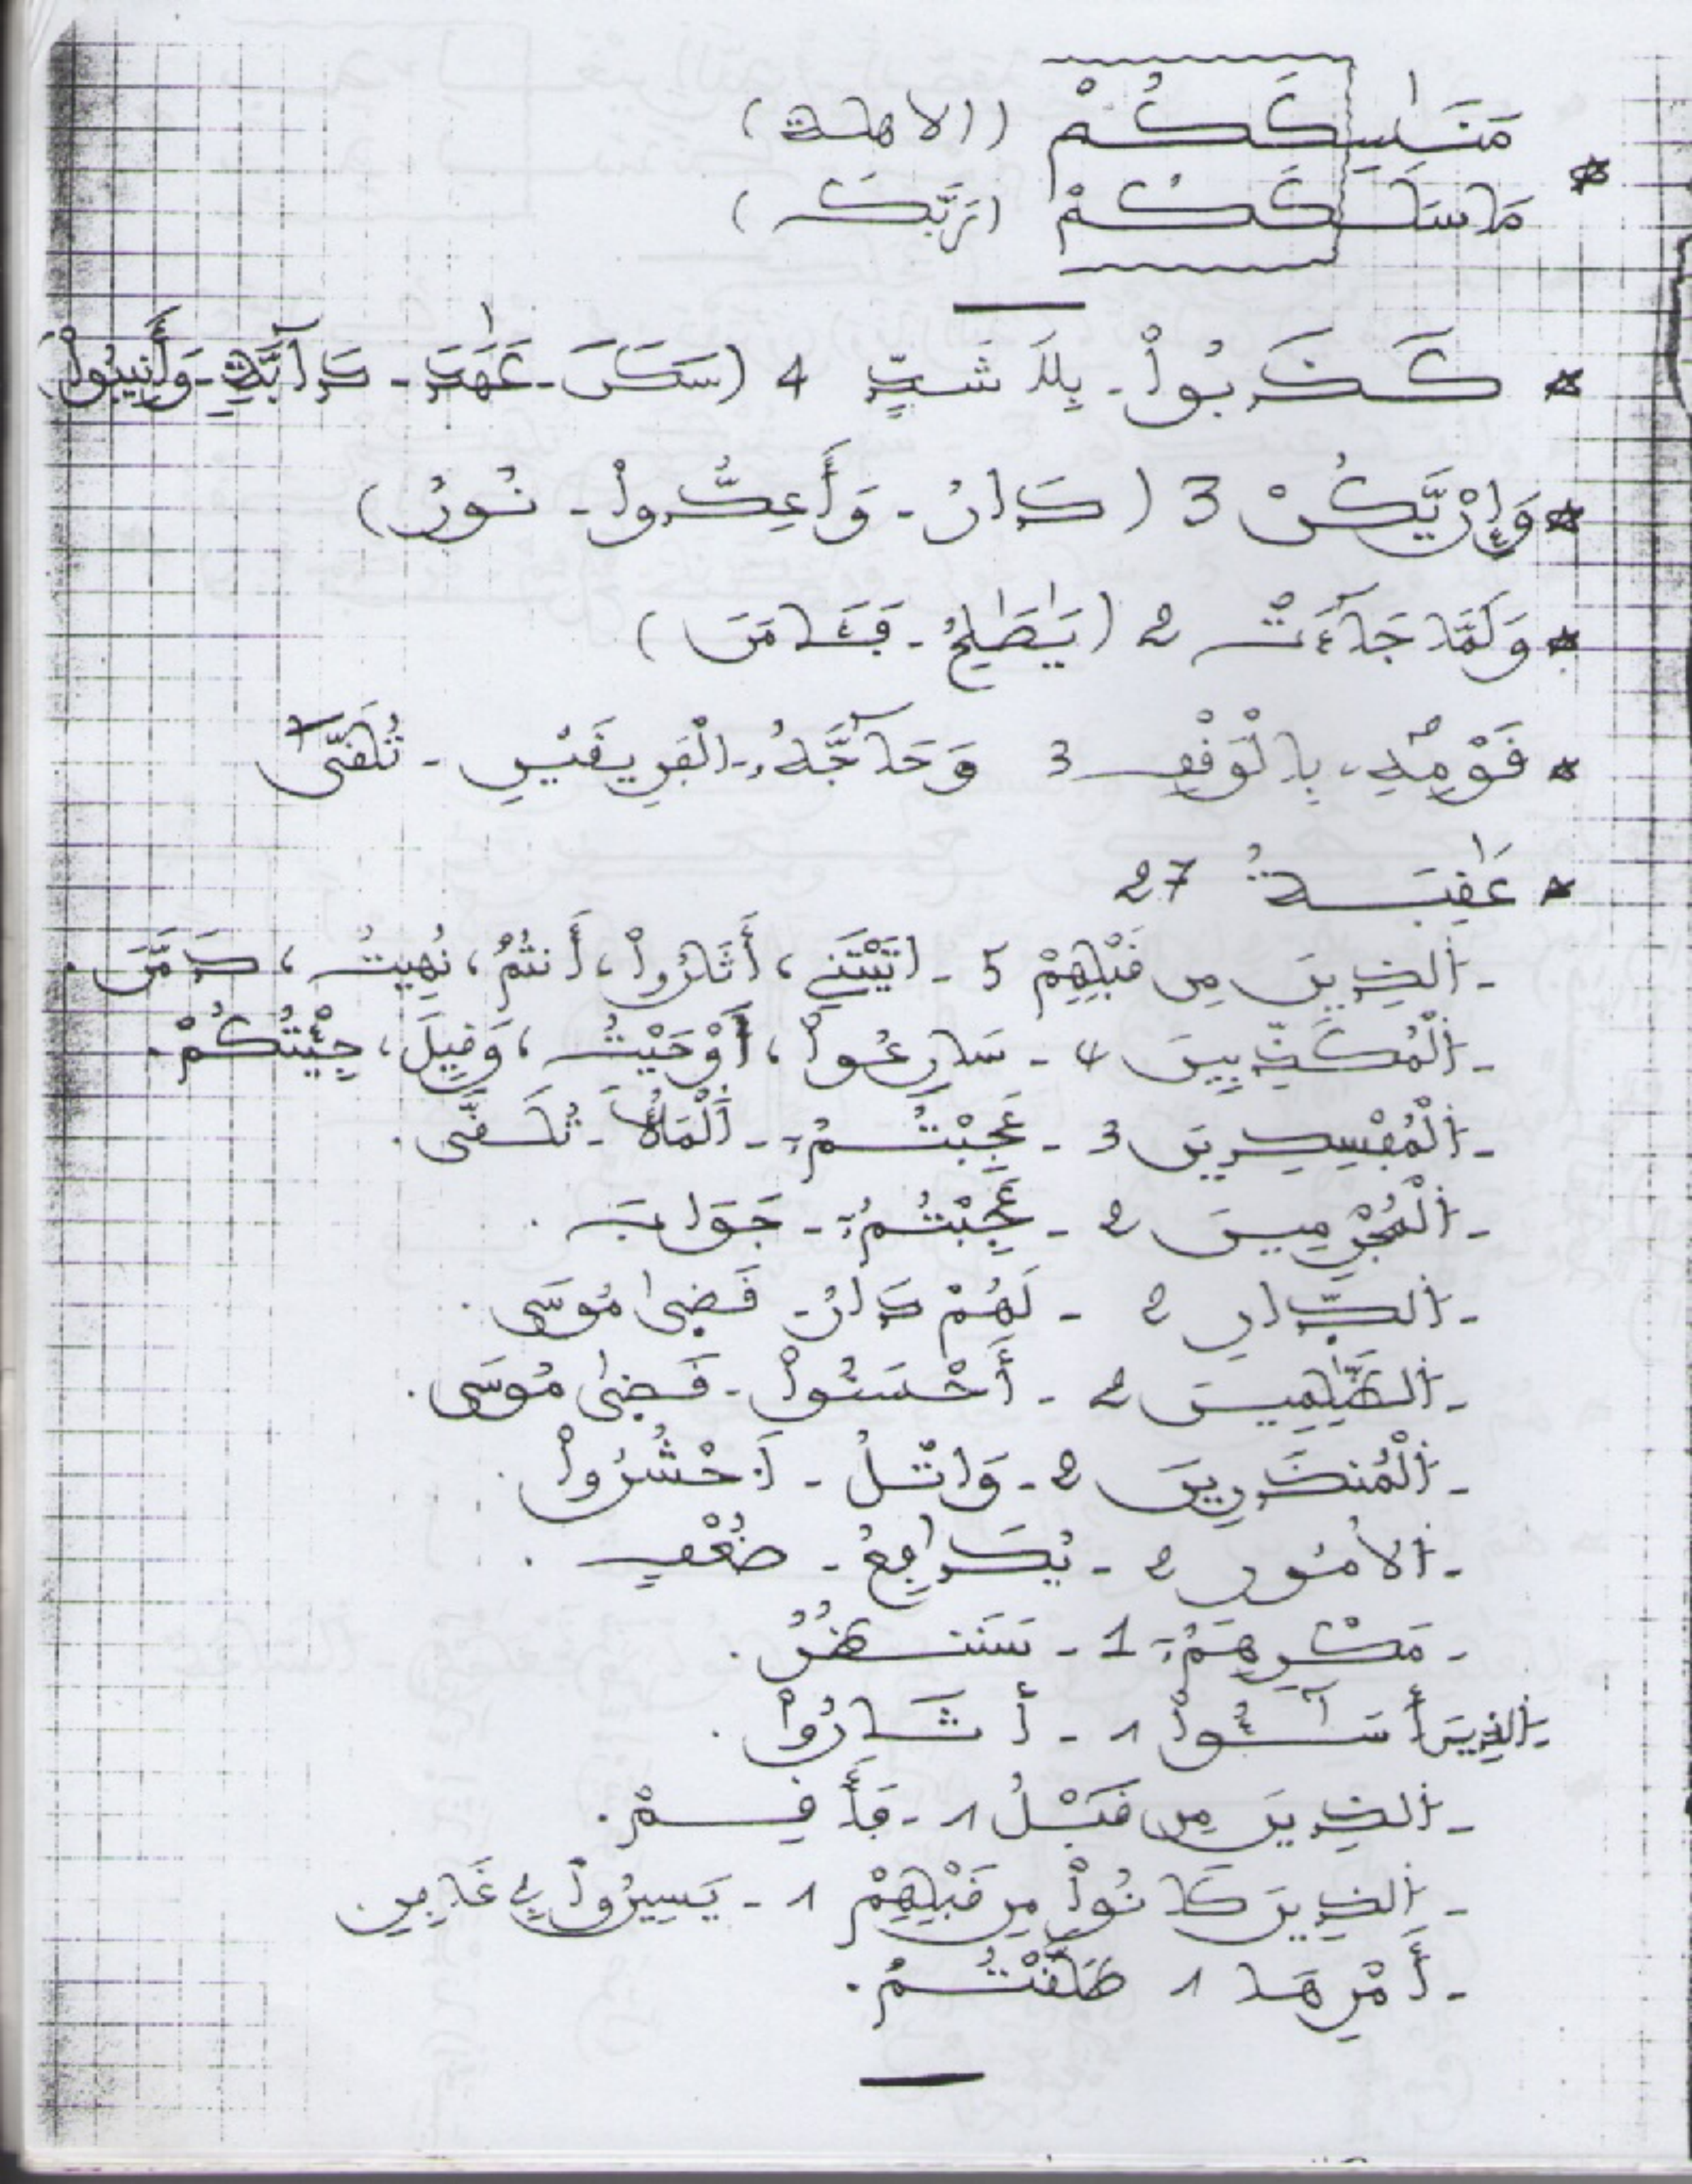 مَنَٰسِكَكُمْ (الاهلة)
مَا سَلَكَكُمْ (تَرَبَّكَ)
كَذَّبُواْ - بِلِقَا شَتٍّ 4 (سَكَنَ - عَٰهَدَ - دَآبَّةٍ - وَأَنِيبُواْ)
وَإِنْ يَّكُنْ 3 (كَانَ - وَأَعِدُّواْ - نُورُ)
وَلَمَّا جَآءَتْ 2 (يَٰصَٰلِحُ - فَـَٔامَنَ)
قَوْمُهُ، بِالْوَقْفِ 3 وَحَآجَّهُ، - اَلْفَرِيقَيْنِ - تُلَقَّى
عَٰقِبَةُ 27
- اَلذِينَ مِن قَبْلِهِمْ 5 - اتَّيْتَنِے، أَثَارُواْ، أَنتُمْ، نُهِيتُ، دَمَّرَ.
- اَلْمُكَذِّبِينَ 4 - سَارِعُواْ، أَوْحَيْتُ، وَقِيلَ، جِئْتُكُمْ.
- اَلْمُفْسِدِينَ 3 - عَجِبْتُمُۥ - اَلْمَلَأُ - تُلَقَّى.
- اَلْمُجْرِمِينَ 2 - عَجِبْتُمُۥ - جَوَابَ.
- اَلدِّارِ 2 - لَهُمْ دَارُ - قَضَى مُوسَى.
- اَلظَّٰلِمِينَ 2 - أَحْسَنُواْ - قَضَى مُوسَى.
- اَلْمُنذَرِينَ 2 - وَاتْلُ - اَحْشُرُواْ.
- اَلامُورِ 2 - يُدَٰفِعُ - ضُعْفٍ.
- مَكْرِهِمُۥ 1 - سَنَنظُرُ.
- اَلذِينَ أَسَٰٓـُٔواْ 1 - أَثَارُواْ.
- اَلذِينَ مِن قَبْلُ 1 - فَأَقِمْ.
- اَلذِينَ كَانُواْ مِن قَبْلِهِمْ 1 - يَسِيرُواْ فِے غَافِرِ.
- أَمْرِهَا 1 طَلَّقْتُمُ.